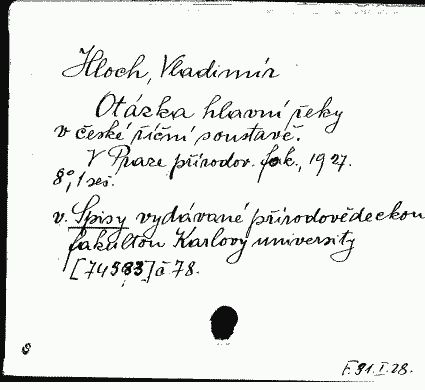 Hloch, Vladimír
Otázka hlavní řeky
v české říční soustavě.
V Praze přírodov. fak., 1927.
8°, 1 seš.
v. Spisy vydávané přírodovědeckou
fakultou Karlovy university
[74583] č 78.
F.91.I.28.